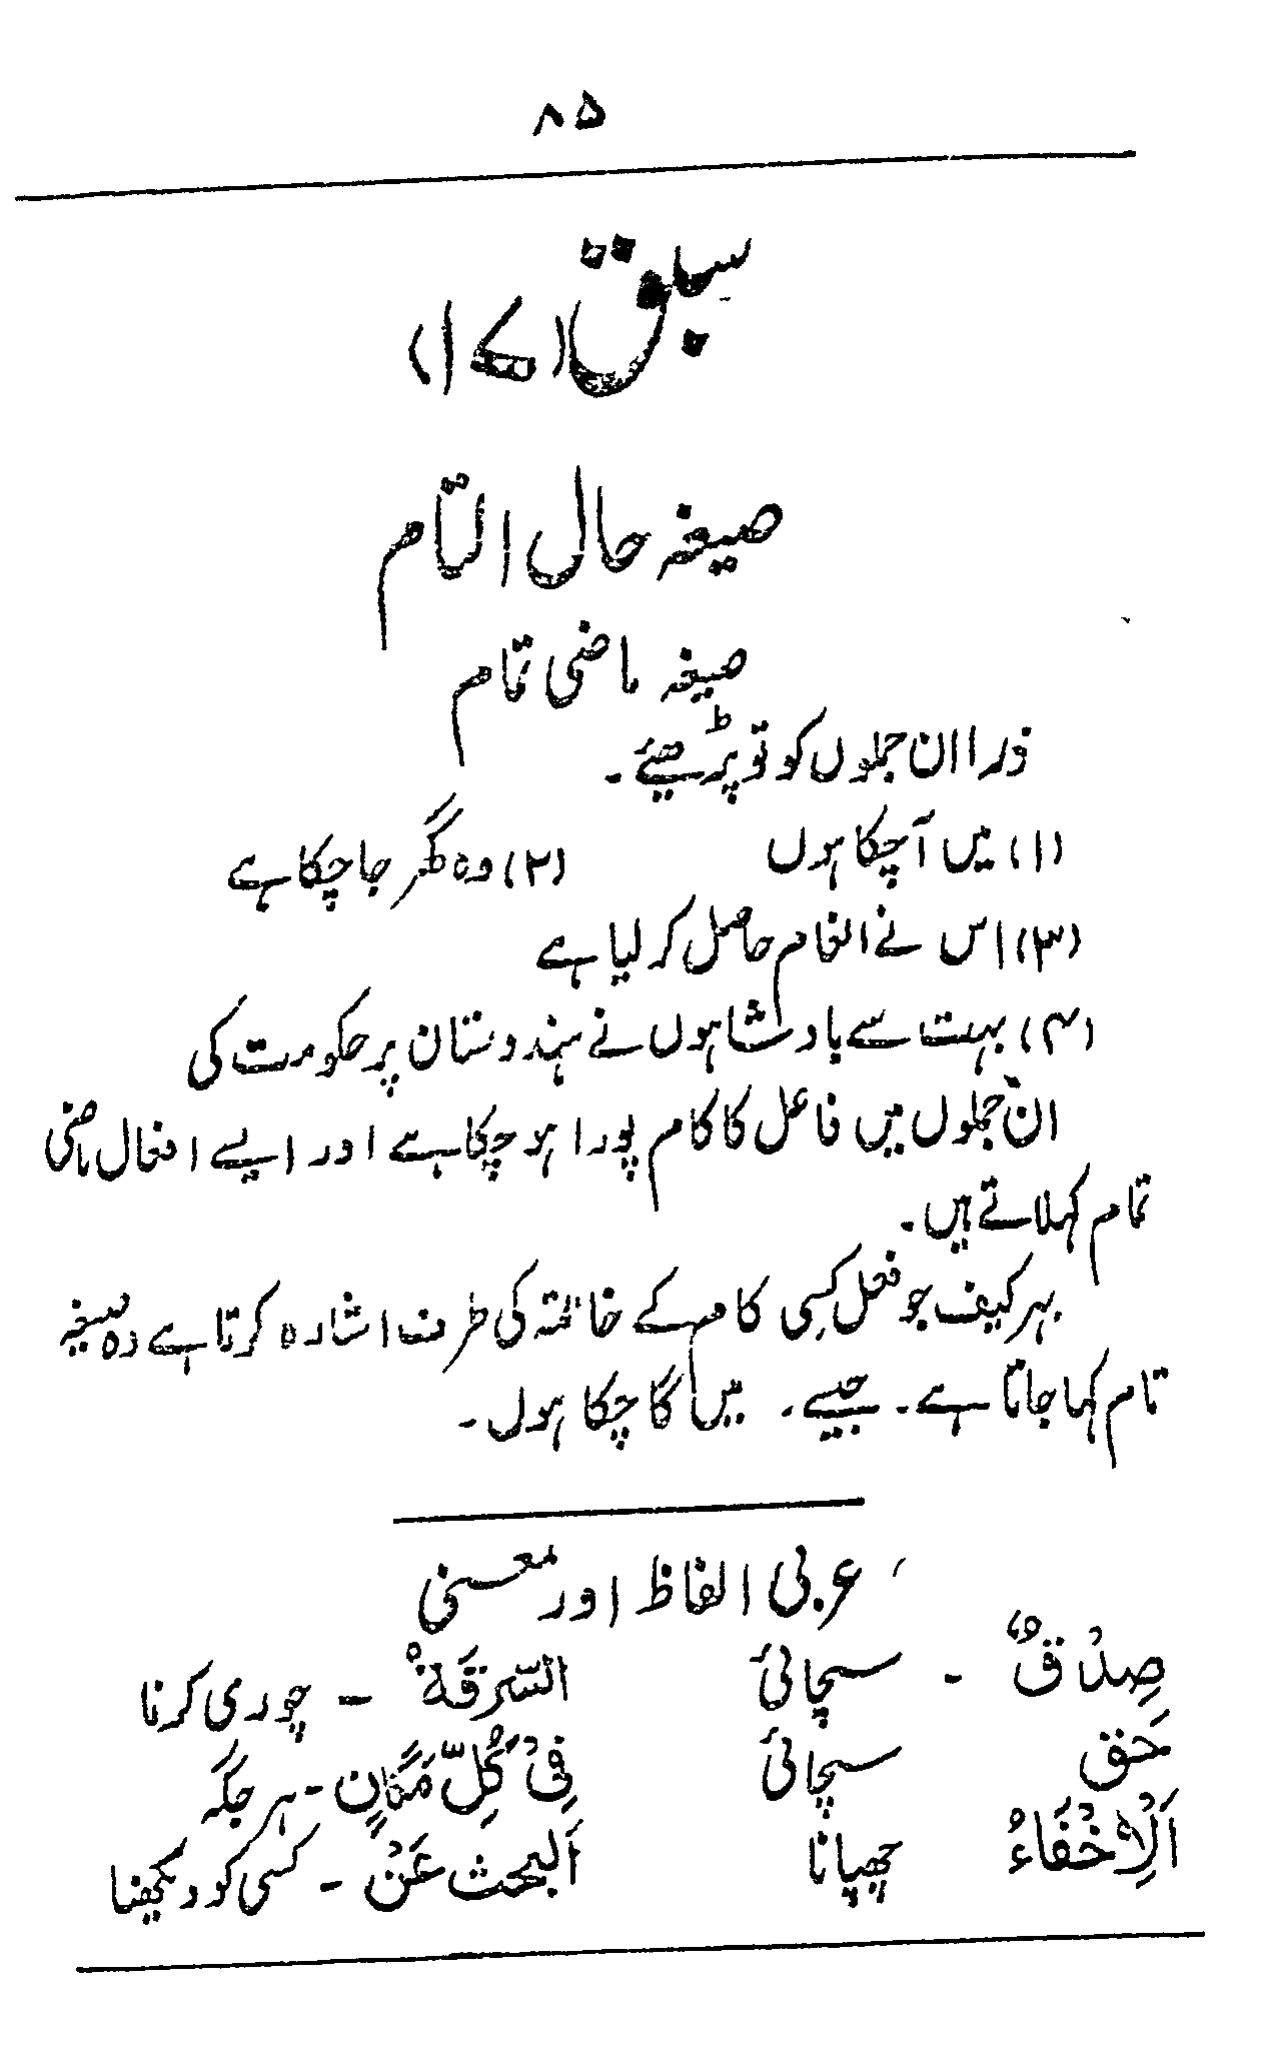 ۸۵
سبق (۱۷)
صیغہ حال التّام
صیغہ ماضی تمام
ذرا ان جملوں کو تو پڑھیئے۔
(۱) میں آچکا ہوں (۲) وہ گھر جا چکا ہے
(۳) اس نے انعام حاصل کر لیا ہے
(۴) بہت سے بادشاہوں نے ہندوستان پر حکومت کی
ان جملوں میں فاعل کا کام پورا ہو چکا ہے اور ایسے افعال ماضی
تمام کہلاتے ہیں۔
بہر کیف جو فعل کسی کام کے خاتمہ کی طرف اشارہ کرتا ہے وہ صیغہ
تام کہا جاتا ہے۔ جیسے، میں گا چکا ہوں۔
عربی الفاظ اور معنی
صِدْقٌ - سچائی السَّرِقَةُ - چوری کرنا
حَق سچائی فِیْ کُلِّ مَکَانٍ - ہر جگہ
اَلْاِخْفَاءُ چھپانا اَلبحث عَنْ - کسی کو دیکھنا